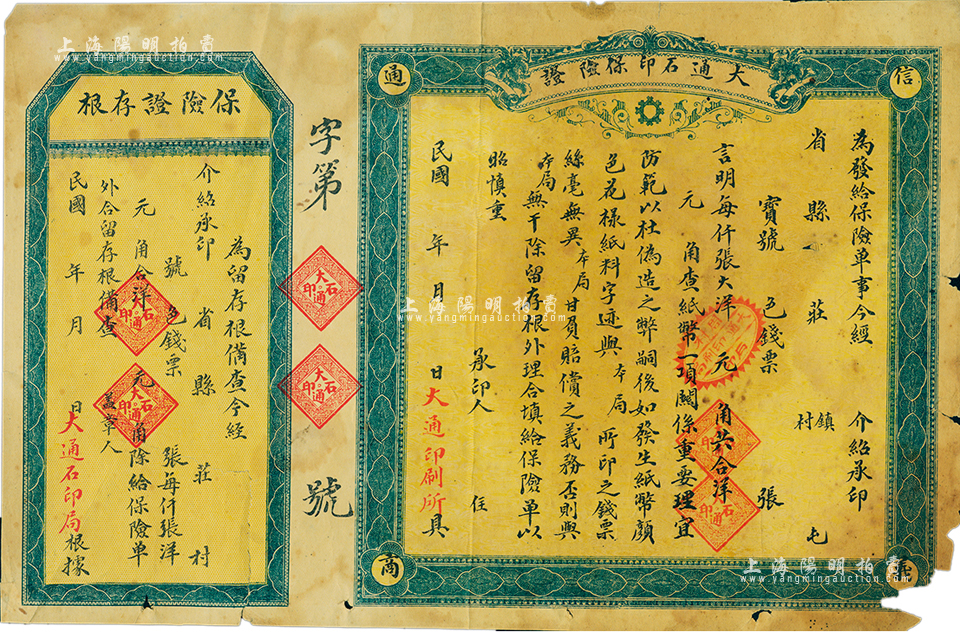 上海陽明拍賣
www.yangmingauction.com
大通石印保險證
信
通
商
為發給保險單事今經 介紹承印
省 縣 莊 鎮 村 屯
寶號 色錢票 張
言明每仟張大洋 元 角共合洋
元 角查紙幣一項關係重要理宜
防範以杜偽造之弊嗣後如發生紙幣顏
色花樣紙料字迹與 本局 所印之錢票
絲毫無異 本局 甘負賠償之義務否則與
本局 無干除留存根外理合填給保險單以
昭慎重
承印人 住
民國 年 月 日大通印刷所具
字第 號
大通石印
大通石印
保險證存根
為留存根備查今經
介紹承印 省 縣 莊 村
號 色錢票 張每仟張洋
元 角合洋 元 角除給保險單
外合留存根備查 蓋章人
民國 年 月 日大通石印局根據
大通石印
大通石印
上海陽明拍賣
www.yangmingauction.com
上海陽明拍賣
www.yangmingauction.com